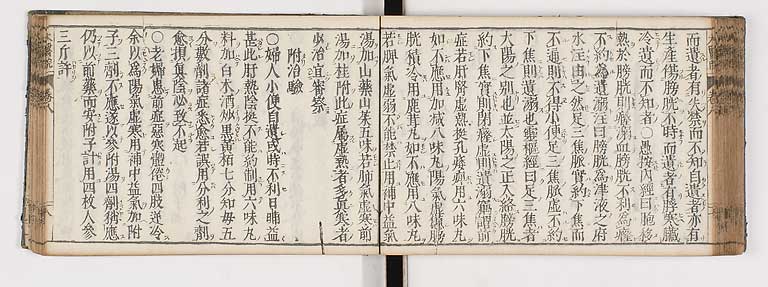 而遺者有失禁而不知自遺者亦有
生產傷膀胱不時而遺者有脬寒臟
冷遺而不知者〇愚按內經曰胞移
熱於膀胱則癃溺血膀胱不利為癃
不約為遺溺注曰膀胱為津液之府
水注由之然足三焦脈實約下焦而
不通則不得小便足三焦脈虛不約
下焦則遺溺也靈樞經曰足三焦者
太陽之別也並太陽之正入絡膀胱
約下焦實則閉癃虛則遺溺
症若肝腎虛熱挺孔痿痹用六味丸
如不應用加減八味丸陽氣虛憊膀
胱積冷用鹿茸丸如不應用八味丸
若脾氣虛弱不能禁止用補中益氣
湯加山藥山茱五味若肺氣虛寒前
湯加桂附此症屬虛熱者多真寒者
必治宜審察
附治驗
〇婦人小便自遺或時不利日晡益
甚此肝熱陰挺不能約制用六味丸
料加白朮酒炒黑黃栢七分知母五
分數劑諸症悉愈若誤用分利之劑
愈損真陰必致不起
〇老婦患前症惡寒體倦四肢逆冷
余以為陽氣虛寒用補中益氣加附
子三劑不應遂以參附湯四劑稍應
仍以前藥而安附子計用四枚人參
三斤許